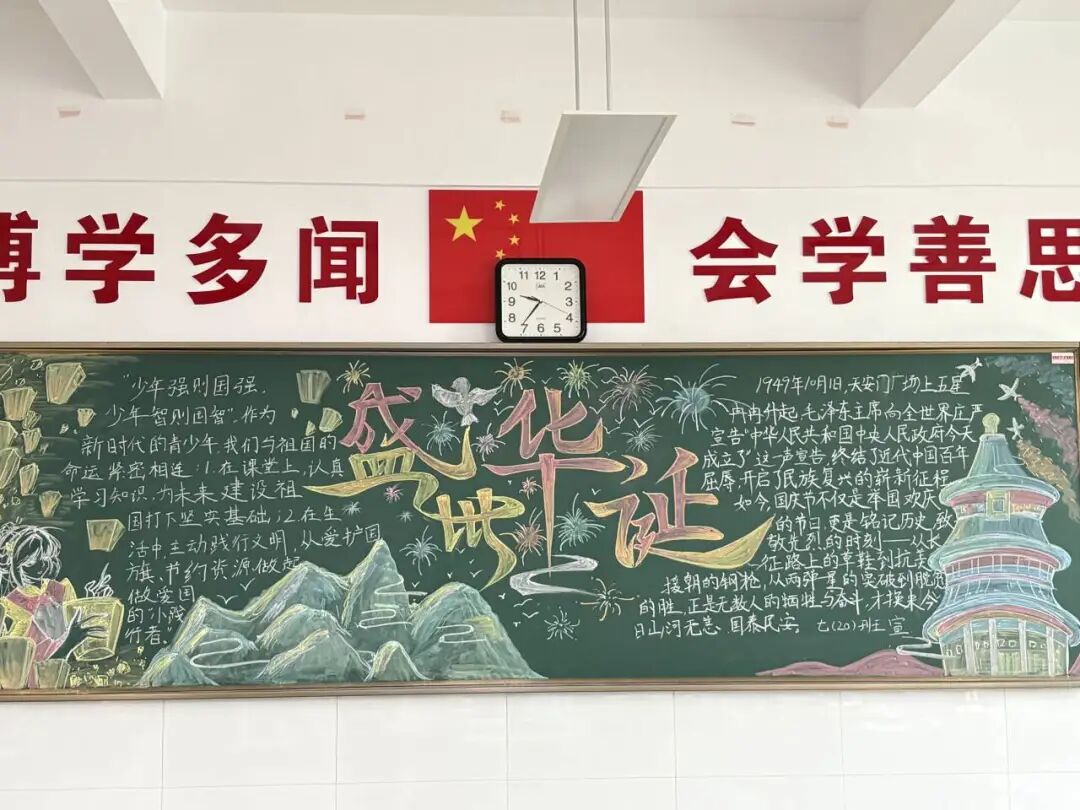 博学多闻
会学善思
11 12 1
10 2
9 3
8 4
7 6 5
"少年强则国强,
少年智则国智",作为
新时代的青少年,我们与祖国的
命运紧密相连:1.在课堂上,认真
学习知识,为未来建设祖
国打下坚实基础;2.在生
活中主动践行文明,从爱护国
旗、节约资源做起
做爱国
的"小践
行者"
盛世华诞
1949年10月1日,天安门广场上五星
冉冉升起,毛泽东主席向全世界庄严
宣告"中华人民共和国中央人民政府今天
成立了"这一声宣告,终结了近代中国百年
屈辱,开启了民族复兴的崭新征程
如今,国庆节不仅是举国欢庆
的节日,更是铭记历史、致
敬先烈的时刻——从长
征路上的草鞋到抗美
援朝的钢枪,从两弹一星的突破到脱贫
的胜,正是无数人的牺牲与奋斗,才换来今
日山河无恙、国泰民安。 七(20)班宣